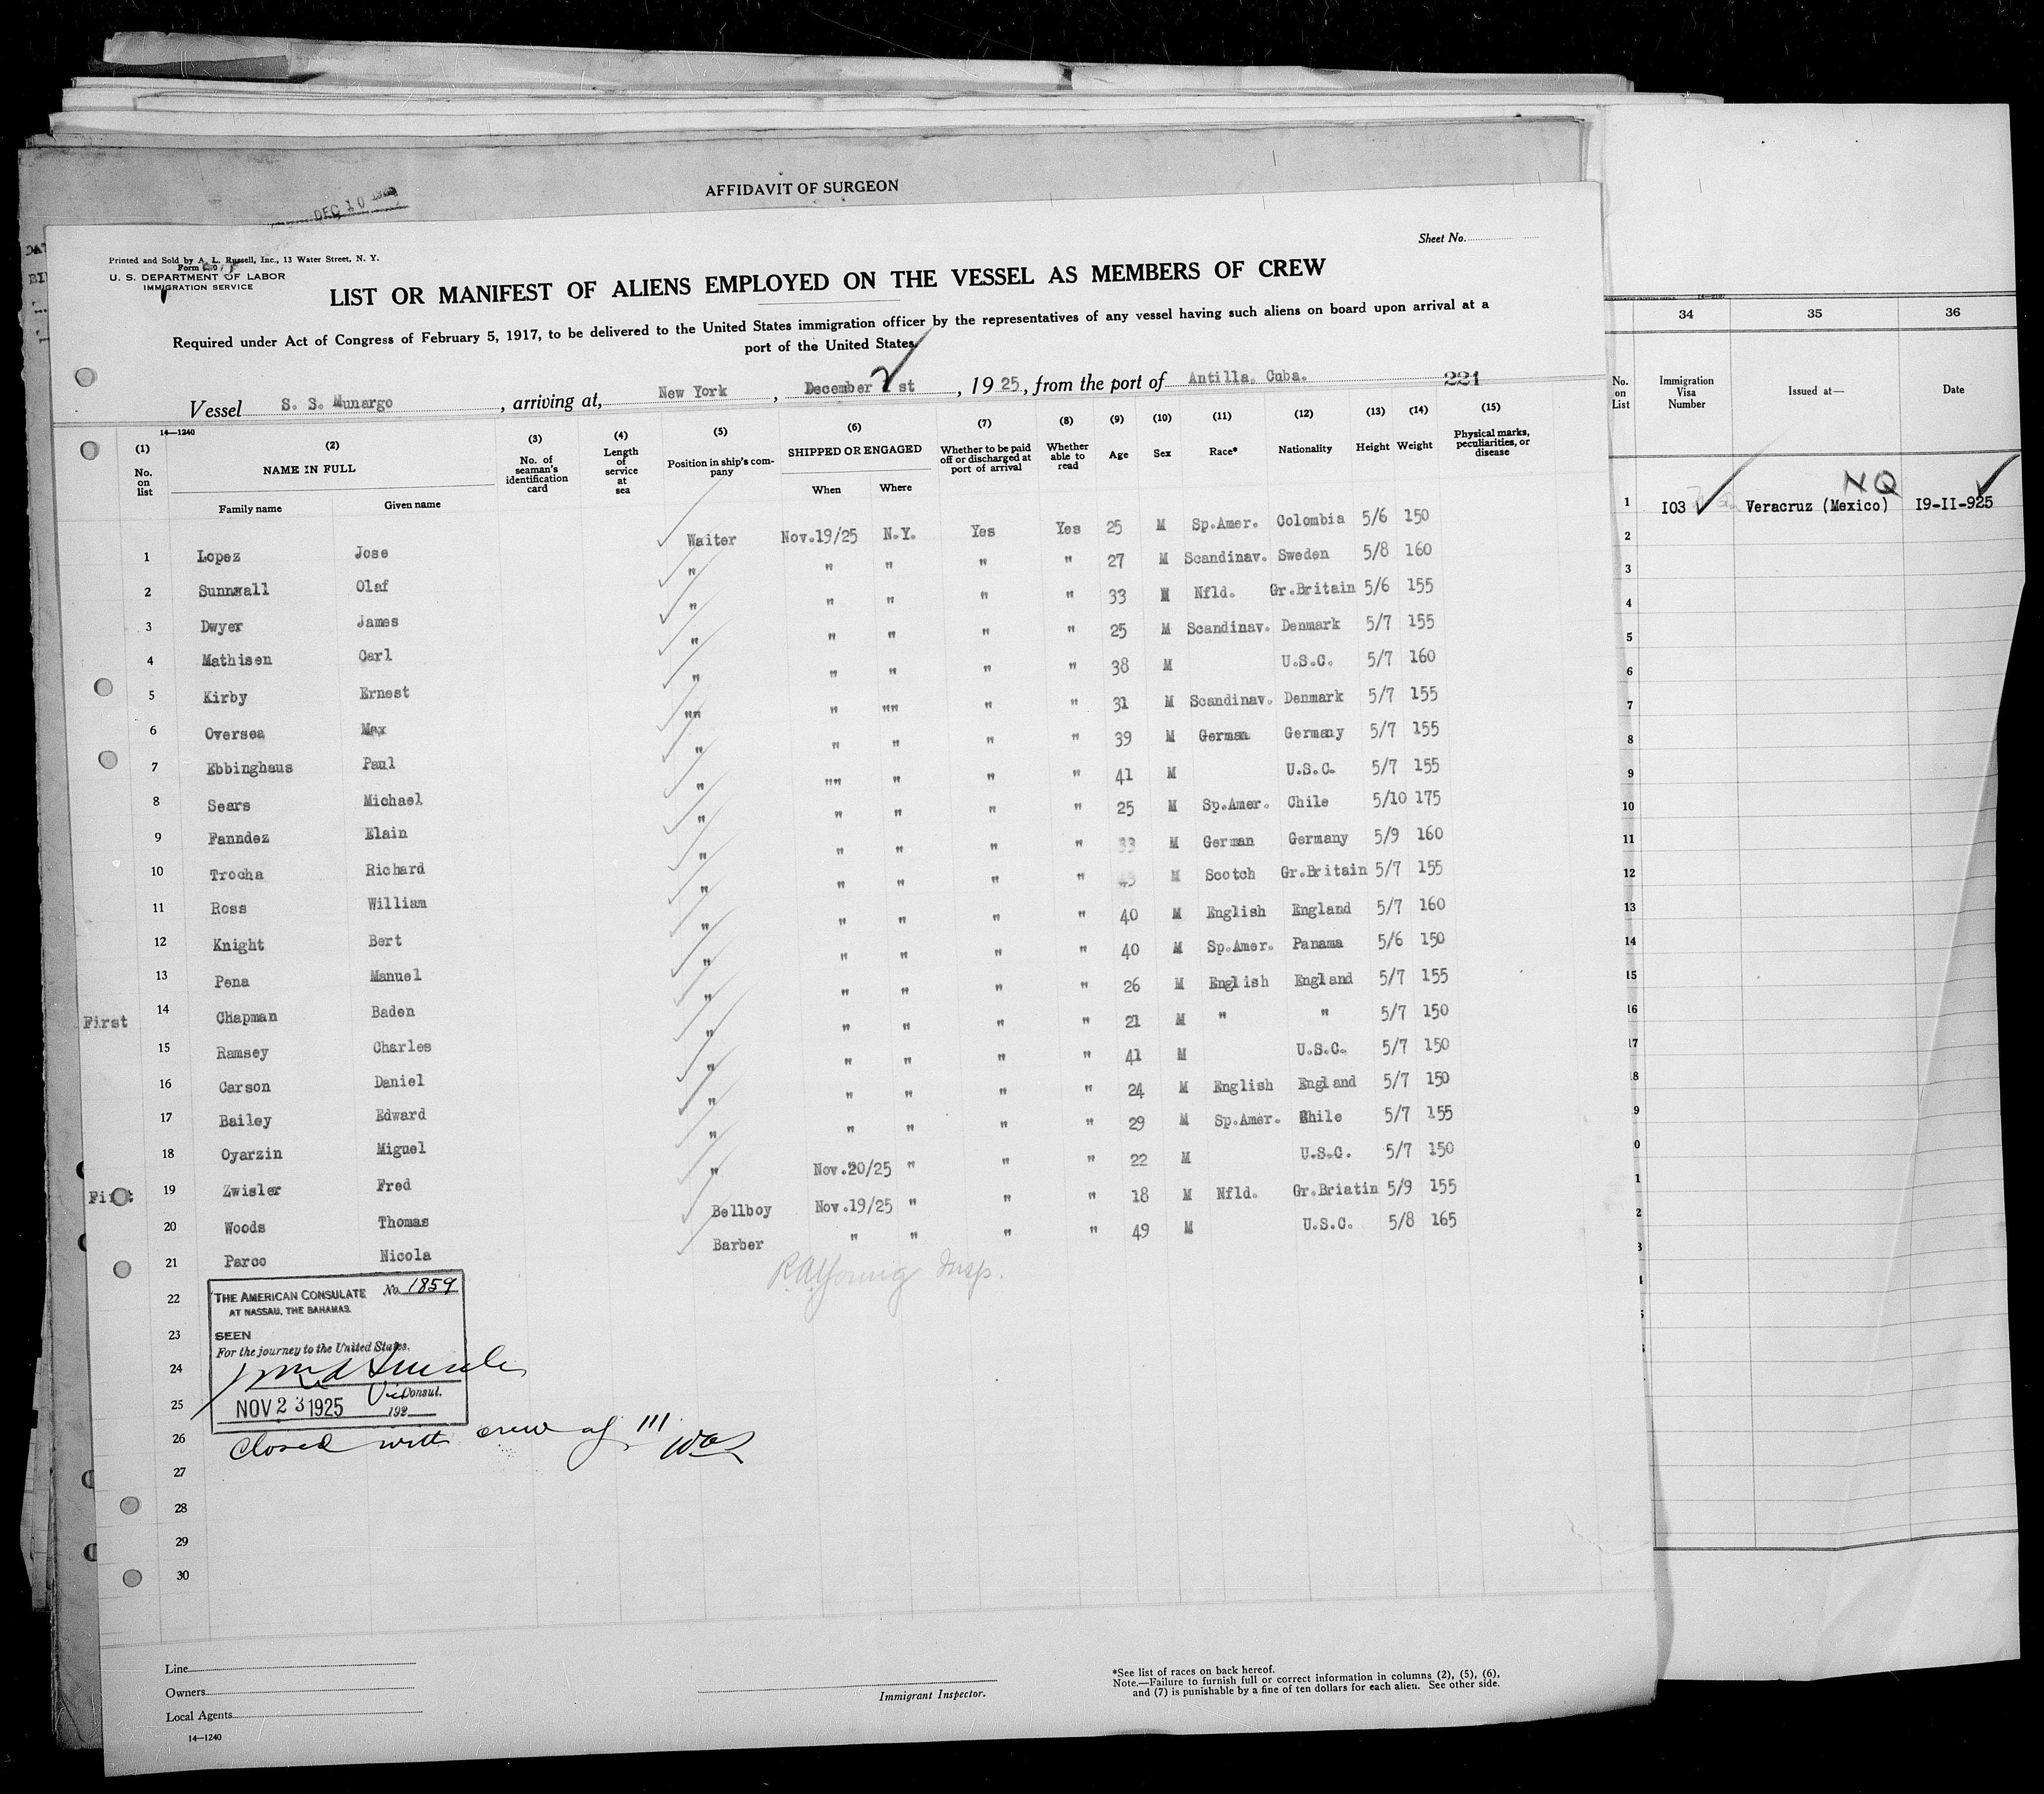 AFFIDAVIT OF SURGEON
DEC 10
Sheet No.
Printed and Sold by A. L. Russell, Inc., 13 Water Street, N. Y.
Form
U. S. DEPARTMENT OF LABOR
IMMIGRATION SERVICE
LIST OR MANIFEST OF ALIENS EMPLOYED ON THE VESSEL AS MEMBERS OF CREW
Required under Act of Congress of February 5, 1917, to be delivered to the United States immigration officer by the representatives of any vessel having such aliens on board upon arrival at a
port of the United States.
Vessel S. S. Munargo, arriving at, New York, December st, 1925, from the port of Antilla, Cuba. 221
14—1240
(1) No. on list (2) NAME IN FULL Family name Given name (3) No. of seaman's identification card (4) Length of service at sea (5) Position in ship's company (6) SHIPPED OR ENGAGED When Where (7) Whether to be paid off or discharged at port of arrival (8) Whether able to read (9) Age (10) Sex (11) Race* (12) Nationality (13) Height (14) Weight (15) Physical marks, peculiarities, or disease
1 Lopez Jose Waiter Nov.19/25 N.Y. Yes Yes 25 M Sp.Amer. Colombia 5/6 150
2 Sunnwall Olaf " " " " " 27 M Scandinav. Sweden 5/8 160
3 Dwyer James " " " " " 33 M Nfld. Gr.Britain 5/6 155
4 Mathisen Carl " " " " " 25 M Scandinav. Denmark 5/7 155
5 Kirby Ernest " " " " " 38 M U.S.C. 5/7 160
6 Oversea Max "" " "" " " 31 M Scandinav. Denmark 5/7 155
7 Ebbinghaus Paul " " " " " 39 M German Germany 5/7 155
8 Sears Michael " "" " " " 41 M U.S.C. 5/7 155
9 Fanndez Elain " " " " " 25 M Sp.Amer. Chile 5/10 175
10 Trocha Richard " " " " " 33 M German Germany 5/9 160
11 Ross William " " " " " M Scotch Gr.Britain 5/7 155
12 Knight Bert " " " " " 40 M English England 5/7 160
13 Pena Manuel " " " " " 40 M Sp.Amer. Panama 5/6 150
First 14 Chapman Baden " " " " " 26 M English England 5/7 155
15 Ramsey Charles " " " " " 21 M " " 5/7 150
16 Carson Daniel " " " " " 41 M U.S.C. 5/7 150
17 Bailey Edward " " " " " 24 M English England 5/7 150
18 Oyarzin Miguel " " " " " 29 M Sp.Amer. Chile 5/7 155
First 19 Zwisler Fred " Nov.20/25 " " " 22 M U.S.C. 5/7 150
20 Woods Thomas Bellboy Nov.19/25 " " " 18 M Nfld. Gr.Briatin 5/9 155
21 Parco Nicola Barber " " " " 49 M U.S.C. 5/8 165
R A Young Insp.
22
23
24
25
26
27
28
29
30
THE AMERICAN CONSULATE No. 1859
AT NASSAU, THE BAHAMAS.
SEEN
For the journey to the United States.
Vice Consul.
NOV 23 1925 192
Closed with crew of 111
Line
Owners
Local Agents
14—1240
Immigrant Inspector.
*See list of races on back hereof.
Note.—Failure to furnish full or correct information in columns (2), (5), (6),
and (7) is punishable by a fine of ten dollars for each alien. See other side.
34 35 36
No. on List Immigration Visa Number Issued at— Date
NQ
1 I03 Veracruz (Mexico) I9-II-925
2
3
4
5
6
7
8
9
10
11
12
13
14
15
16
17